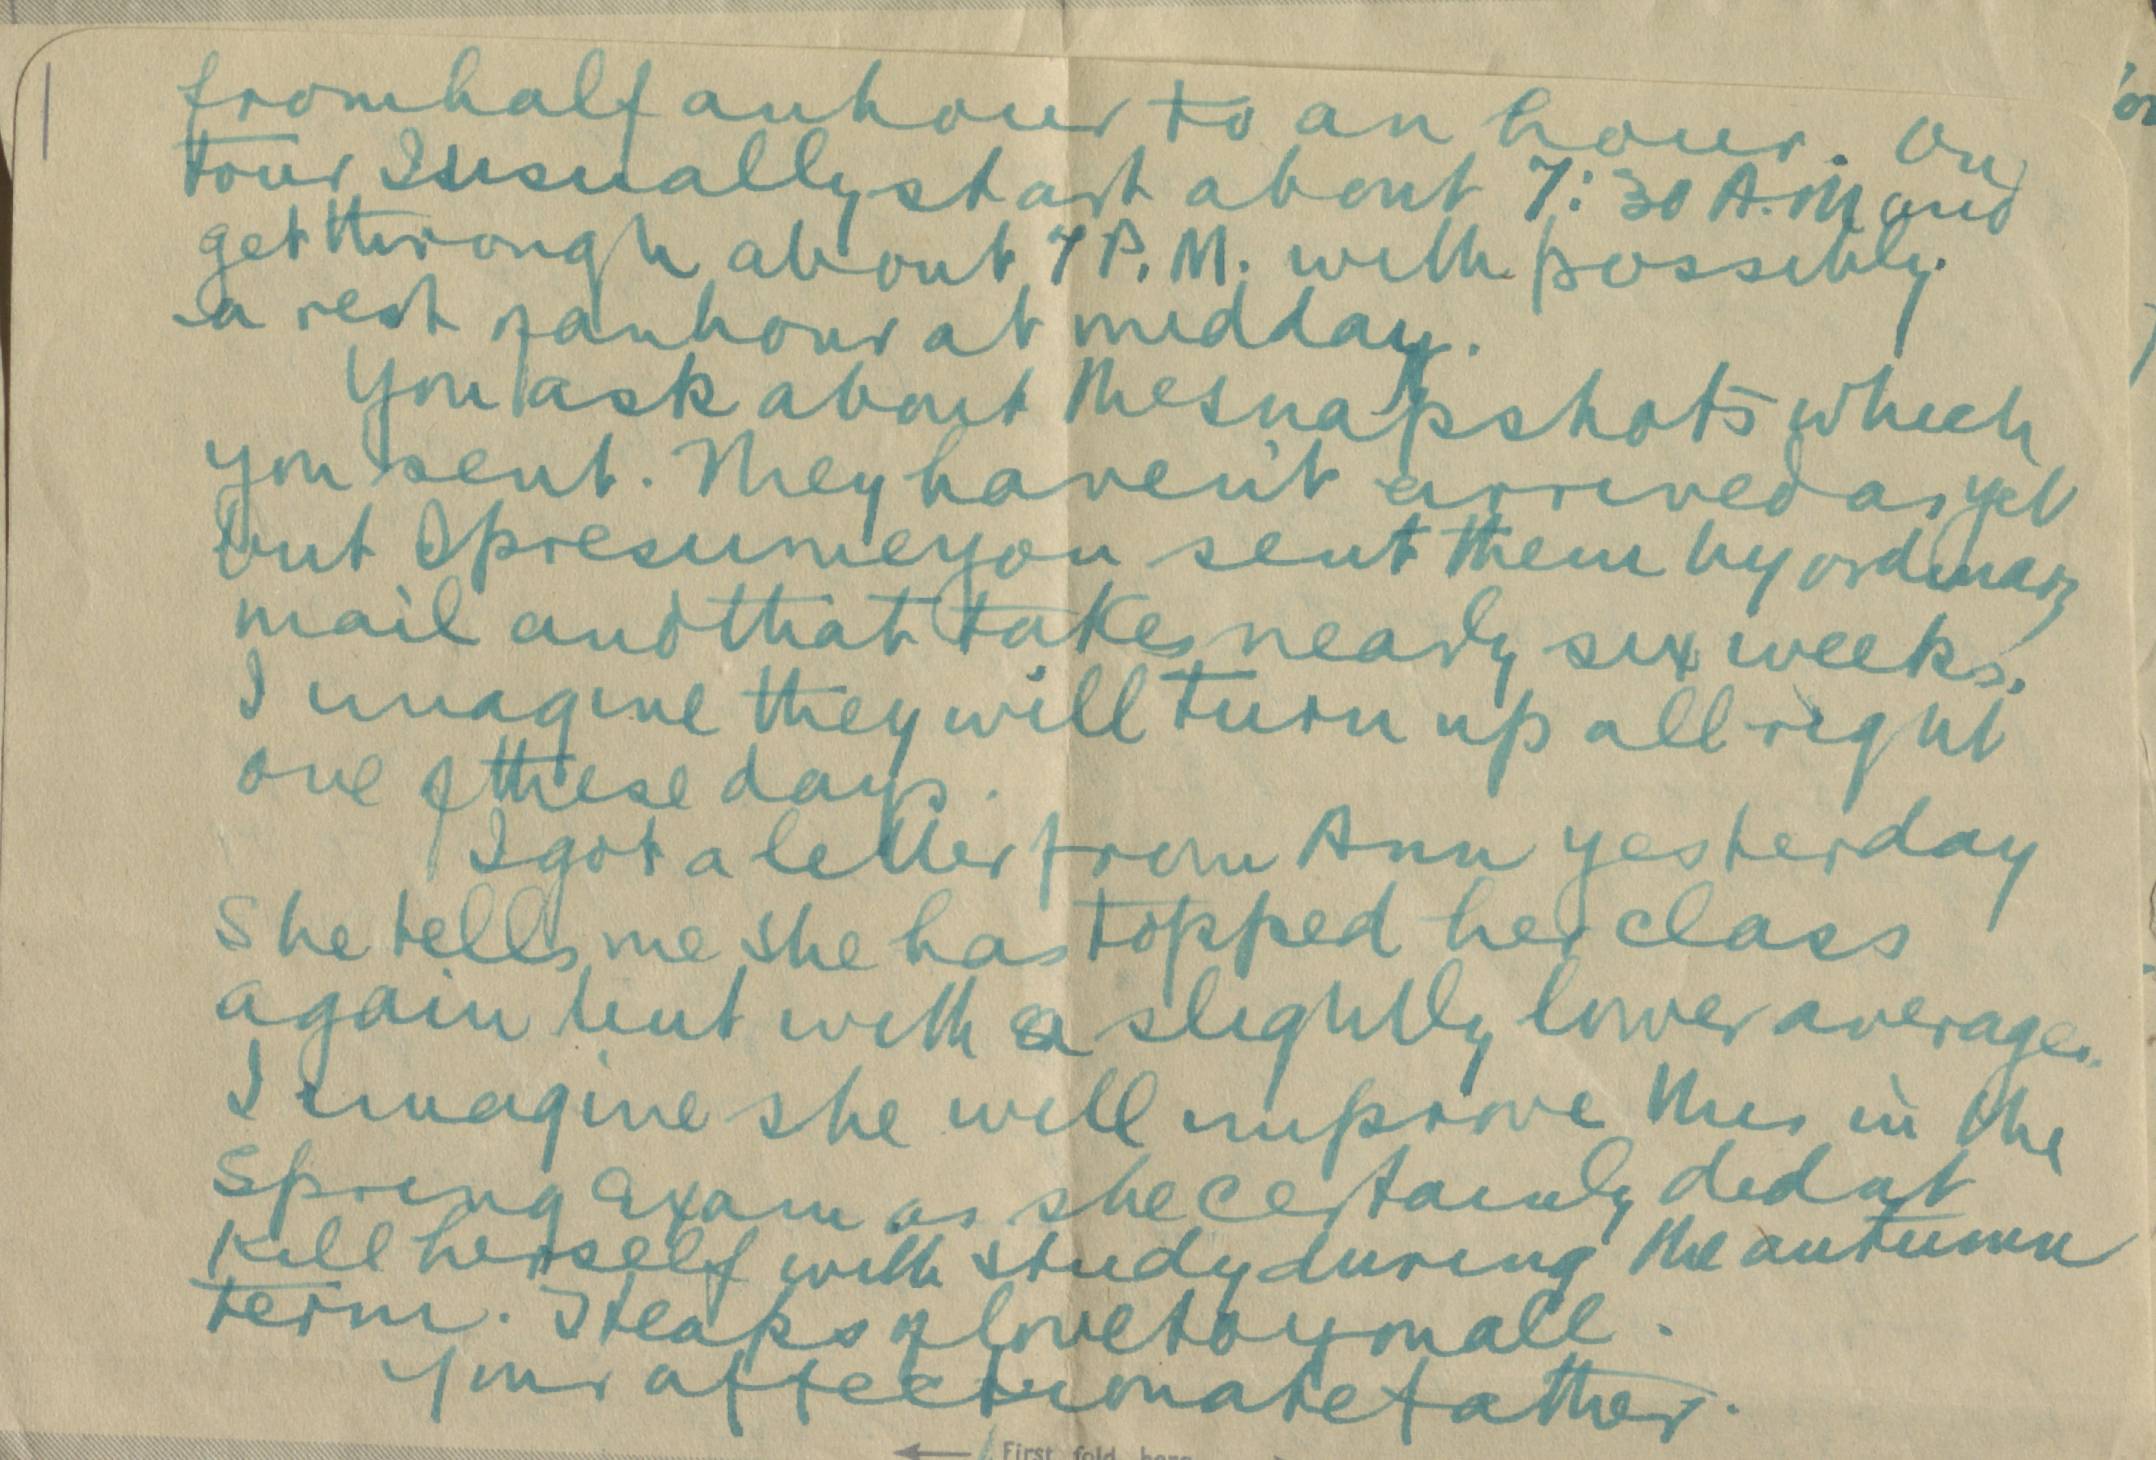 from half an hour to an hour. On
tour I usually start about 7:30 A.M and
get through about 7 P.M. with possibly
a rest of an hour at midday.
You ask about the snapshots which
you sent. They haven't arrived as yet
but I presume you sent them by ordinary
mail and that takes nearly six weeks.
I imagine they will turn up all right
one of these days.
I got a letter from Ann yesterday
She tells me she has topped her class
again but with a slightly lower average.
I imagine she will improve this in the
Spring Exam as she certainly did at
kill herself with study during the autumn
term. Heaps of love to you all.
Your affectionate father.
First fold here